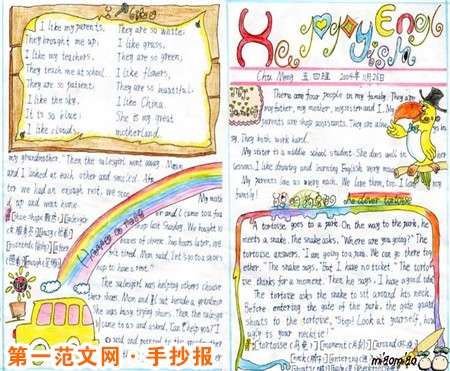 I like my parents,
They brought me up.
I like my teachers,
They teach me at school.
They are so patient.
I like the sky,
It is so blue.
I like clouds,
They are so white.
I like grass,
They are so green,
I like flowers,
They are so beautiful.
I like China.
She is my great
motherland.
my grandmother." Then the salesgirl went away. Mom
and I looked at each other and smiled.
we had enough rest, we
up and went home.
My mother
and I came to a
last Sunday. We bought
pieces of clothes. Two hours later, we
felt tired. Mom said, Let's go to a shoe
to have a rest."
The salesgirl was helping others choose
their shoes. Mom and I sat beside a grandma
was busy trying shoes. Then the salesgirl
came to us and asked, Can I help you? I
Happy English
五四班 2009年11月26日
There are four people in my family. They are
my father, my mother, my sister and I. My
parents are shop assistants. They are
They both work hard.
My sister is a middle school student. She does well in
lessons. I like drawing and learning English very
My parents love us very much. We love them, too. I love
family!
A tortoise goes to a park. On the way to the park, he
meets a snake. The snake asks, "Where are you going?" The
tortoise answers, "I am going to a park. We can go there tog-
ether." The snake says, "But I have no ticket." The torto-
ise thinks for a moment. Then, he says, "I have a good idea."
The tortoise asks the snake to sit around his neck.
Before entering the gate of the park, the gate guard
shouts to the tortoise, "Stop! Look at yourself, how
ugly is your necktie!"
miaomiao
第一范文网·手抄报